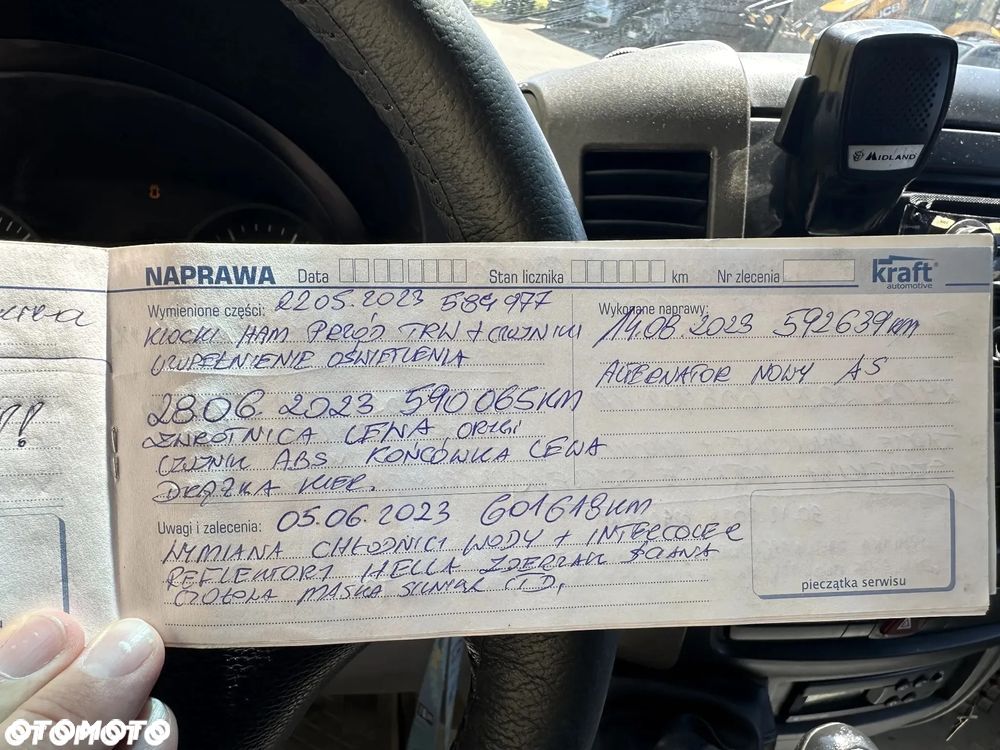 MIDLAND
NAPRAWA Data Stan licznika km Nr zlecenia kraft automotive
Wymienione części: 22 05. 2023 584 977
KLOCKI HAM PRZÓD TRW + CZUJNIKI
UZUPEŁNIENIE OŚWIETLENIA
28.06. 2023 590 065 KM
ZWROTNICA LEWA ORYGI
CZUJNIK ABS KOŃCÓWKA LEWA
DRĄŻKA KIER.
Wykonane naprawy:
14.08.2023 592639 KM
ALTERNATOR NOWY AS
Uwagi i zalecenia: 05.06.2023 601618 KM
WYMIANA CHŁODNICY WODY + INTERCOLER
REFLEKTORY HELLA ZDERZAK ŚCIANA
CZOŁOWA MASKA SILNIKA
pieczątka serwisu
!!
OTOMOTO